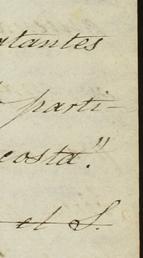 tantes
parti-
costa."
el S.